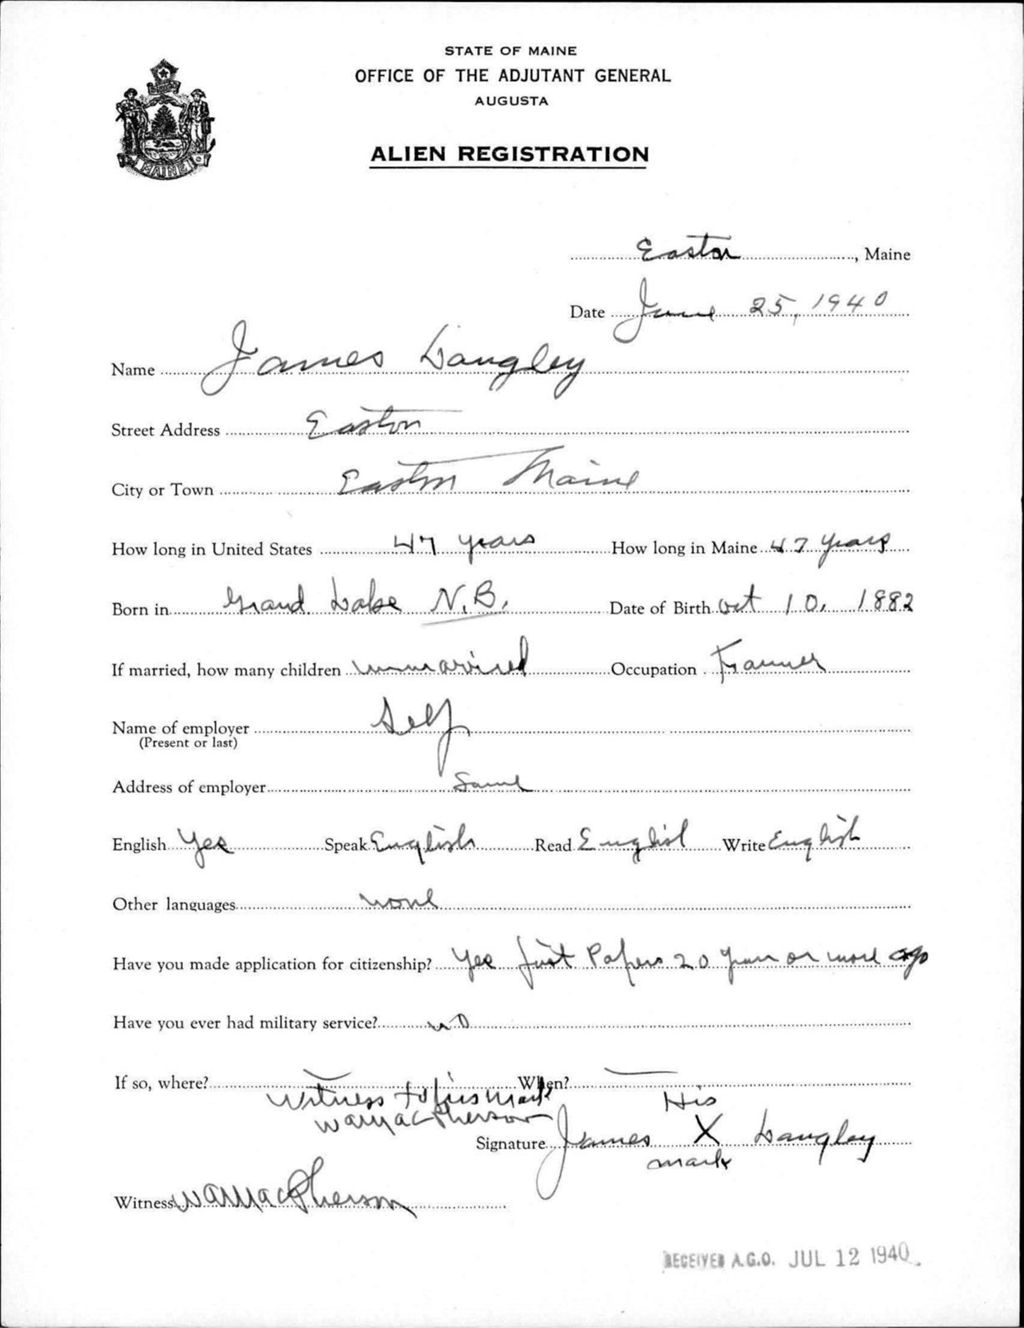 STATE OF MAINE
OFFICE OF THE ADJUTANT GENERAL
AUGUSTA
ALIEN REGISTRATION
MAINE
Easton, Maine
Date June 25, 1940
Name James Langley
Street Address Easton
City or Town Easton Maine
How long in United States 47 years How long in Maine 47 years
Born in Grand Lake N.B. Date of Birth Oct 10, 1882
If married, how many children unmarried Occupation Farmer
Name of employer Self
(Present or last)
Address of employer Same
English Yes Speak English Read English Write English
Other languages none
Have you made application for citizenship? Yes first Papers 20 years or more ago
Have you ever had military service? no
If so, where? — When? —
Witness to his mark
W A MacPherson
His
Signature James X Langley
mark
Witness W A MacPherson
RECEIVED A.G.O. JUL 12 1940